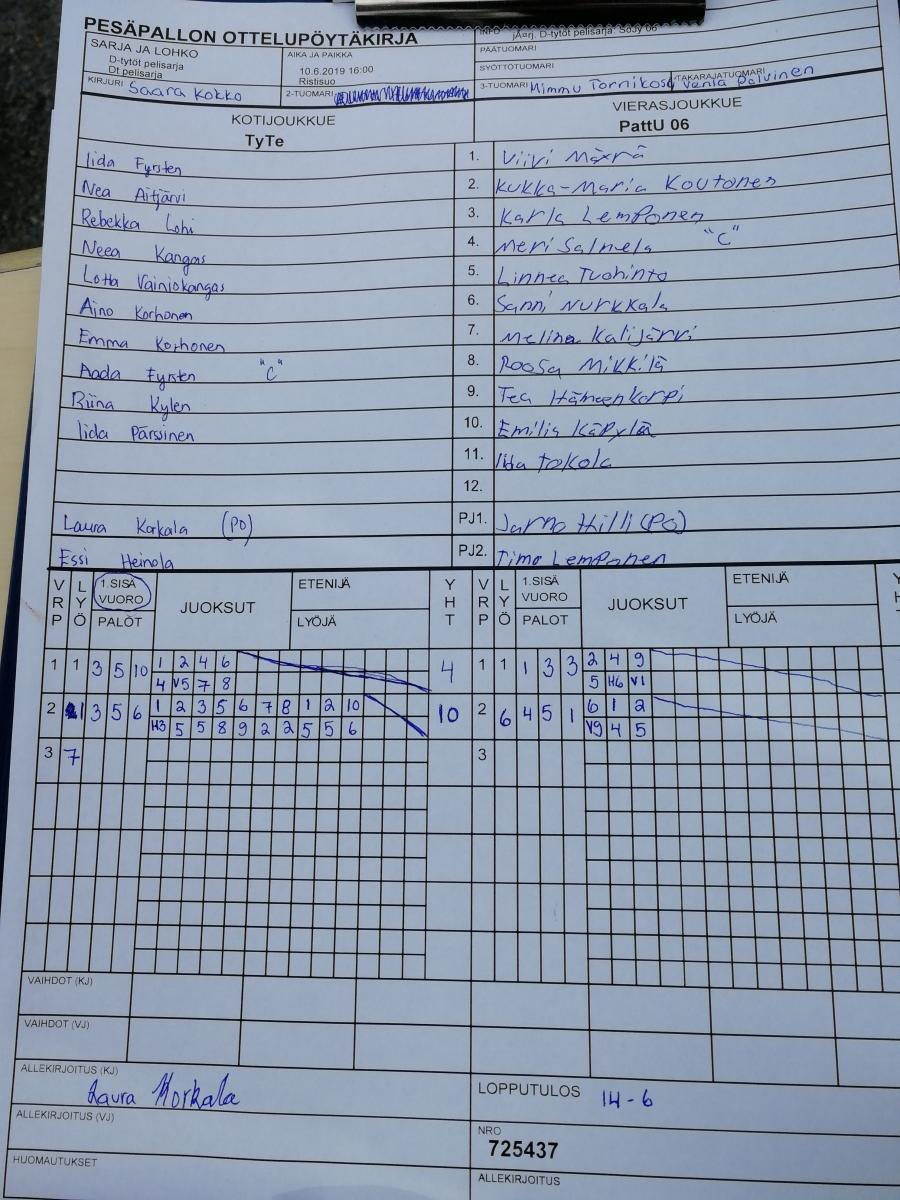 PESÄPALLON OTTELUPÖYTÄKIRJA
SARJA JA LOHKO
D-tytöt pelisarja
Dt pelisarja
AIKA JA PAIKKA
10.6.2019 16:00
Ristisuo
INFO jÄarj. D-tytöt pelisarja: SoJy 06
PÄÄTUOMARI
SYÖTTÖTUOMARI
KIRJURI Saara Kokko
2-TUOMARI
3-TUOMARI Mimmu Tornikoski
TAKARAJATUOMARI Venla
KOTIJOUKKUE
TyTe
VIERASJOUKKUE
PattU 06
Iida Fyrsten 1. Viivi Määrä
Nea Äitjärvi 2. Kukka-Maria Koutonen
Rebekka Lohi 3. Karla Lemponen
Neea Kangas 4. Meri Salmela "C"
Lotta Vainiokangas 5. Linnea Tuohinto
Aino Korhonen 6. Sanni Nurkkala
Emma Korhonen 7. Melina Kalijärvi
Aada Fyrsten "C" 8. Roosa Mikkilä
Riina Kylen 9. Tea Hämeenkorpi
Iida Pärssinen 10. Emilia Käpylä
11. Iida Tokola
12.
Laura Korkala (PO) PJ1. Jarno Hilli (PO)
Essi Heinola PJ2. Timo Lemponen
VRP LYÖ 1.SISÄ VUORO PALOT JUOKSUT ETENIJÄ LYÖJÄ YHT VRP LYÖ 1.SISÄ VUORO PALOT JUOKSUT ETENIJÄ LYÖJÄ
1 1 3 5 10 1 2 4 6 4 1 1 1 3 3 2 4 9
4 V5 7 8 5 H6 V1
2 1 3 5 6 1 2 3 5 6 7 8 1 2 10 10 2 6 4 5 1 6 1 2
H3 5 5 8 9 2 2 5 5 6 V9 4 5
3 7 3
VAIHDOT (KJ)
VAIHDOT (VJ)
ALLEKIRJOITUS (KJ)
Laura Korkala
LOPPUTULOS 14-6
ALLEKIRJOITUS (VJ)
NRO
725437
HUOMAUTUKSET
ALLEKIRJOITUS